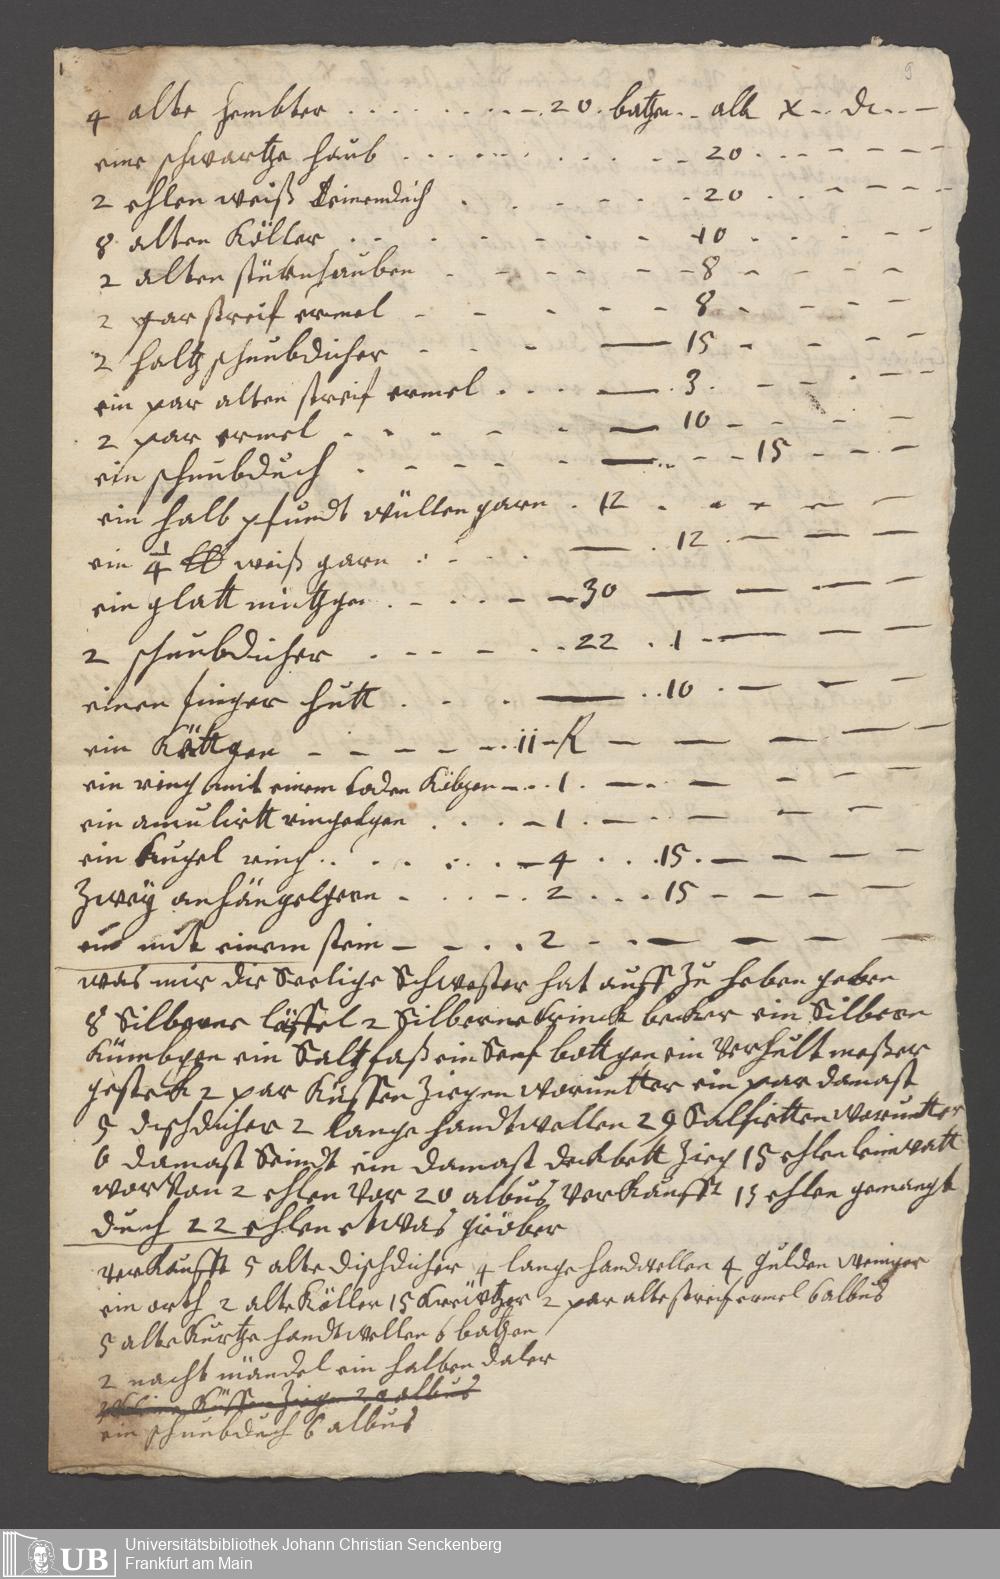 9
4 alte hembter . . . . . . . 20 . batzen . . alb x . . d . . –
eine schwartze haub . . . . . . . . . 20 . . . – – – –
2 ehlen weiß leinenduch . . . . . 20 . . . – – –
8 alten Köller . . . . . . . 10 . . . – –
2 alten stürnhauben . . . . . – 8 – – – –
2 par streif ermel – . – – – 8 – – – –
2 haltz schnubdicher . . . — 15 – – – –
ein par alten streif ermel . . . — . 3 . – – . – –
2 par ermel . . . . . — 10 – – – –
ein schnubduch . – – – – — . . – – 15 – – –
ein halb pfundt wüllen garn . 12 . . x – –
ein 1/4 ℔ weiß garn . . . . — . 12 . – – –
ein glatt mützgen . – . . – – 30 — – – –
2 schnubdicher . – – – . . 22 . 1 . — – –
einen finger hutt . . . — . . 10 . – – –
ein Köttgen – – – – – . . 11 – R – – – – –
ein ring mit einem toden Köbgen – . . 1 . – . – – – –
ein amulirtt ringelgen . . . . – 1 . – . – – –
ein Kugel ring . . . . . . – 4 . . . 15 . – – – –
Zweÿ anhängelgern – . . . – . 2 . . . 15 – – – –
ein mit einem stein – – . . 2 – . – – – –
was mir die Seelige Schwester hat auff Zu heben geben
8 Silberne löffel 2 Silberne trinck becher ein Silbern
Kümbgen ein Saltzfaß ein Senf bottgen ein Verhült meßer
gesteck 2 par Küssen Ziegen woruntter ein par damast
5 dischdicher 2 lange handtwellen 29 Salfietten worunter
6 damast Seindt ein damast deckbett Zieg 15 ehlen leinwatt
wor Von 2 ehlen Vor 20 albus Verkaufft 15 ehlen gemangt
duch 22 ehlen etwas gröber
verkaufft 5 alte dischdicher 4 lange handwellen 4 gulden weniger
ein orth 2 alte Köller 15 Kreützer 2 par alte streif ermel 6 albus
5 alte Kurtze handtwellen 6 batzen
2 nacht mändel ein halben daler
Küssen Ziegen 20 albus
ein schnubduch 6 albus
UB Universitätsbibliothek Johann Christian Senckenberg
Frankfurt am Main